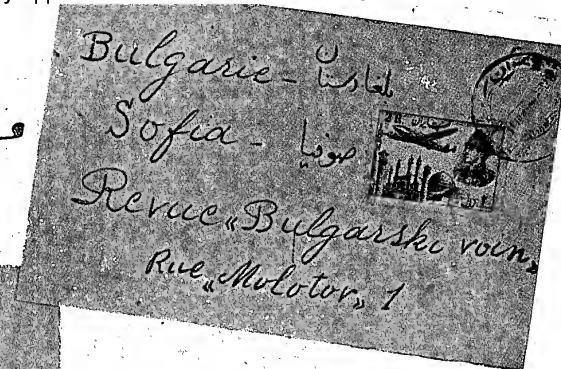 Bulgarie - بلغارستان
Sofia - صوفيا
Revue „Bulgarski voin„
Rue „Molotov„ 1